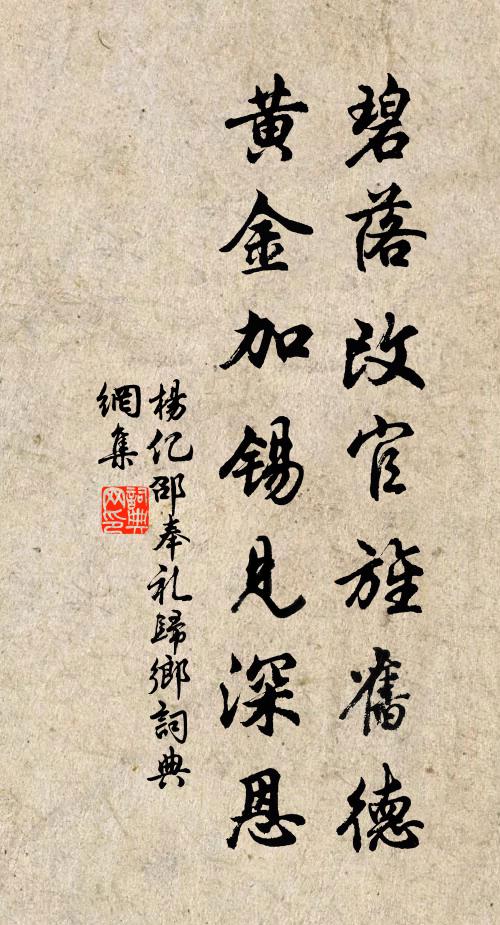 碧落改官旌舊德
黃金加錫見深恩
楊億邵奉礼歸鄉詞典
網集
詞典
网印